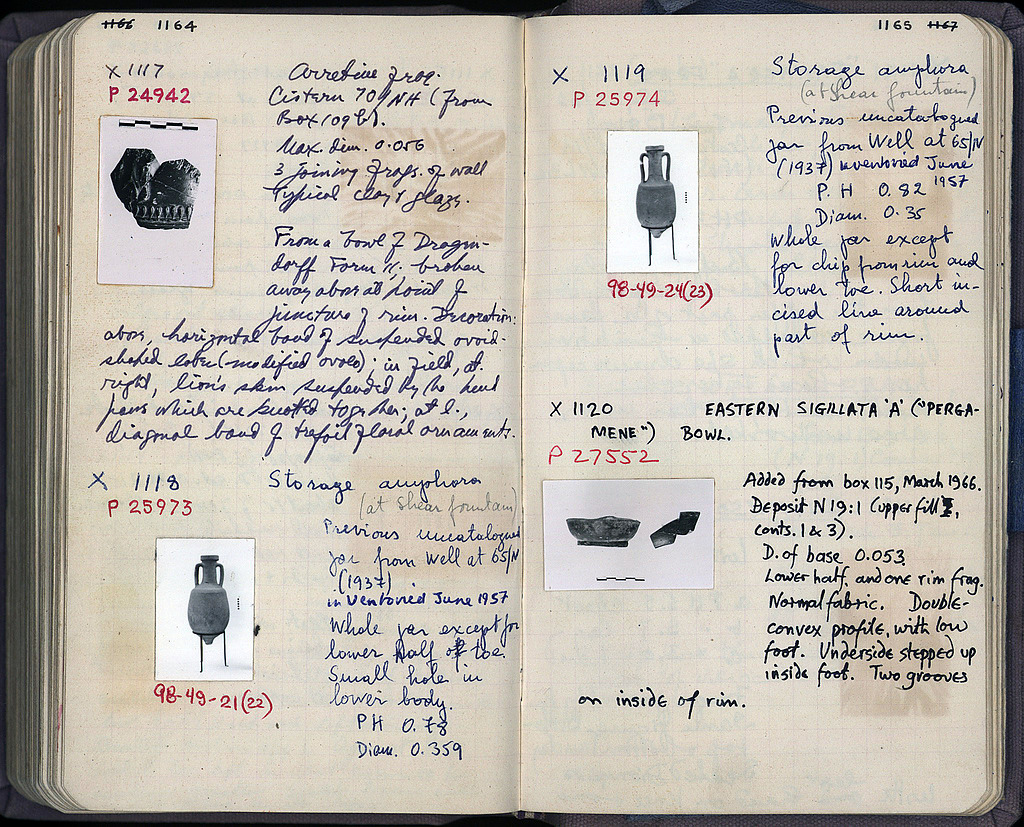 1166 1164
X 1117
P 24942
Arretine frag.
Cistern 70/NH (from
Box 109 b).
Max. dim. 0.056
3 joining frags. of wall
Typical clay & glaze.
From a bowl of Dragen-
dorff Form 11; broken
away above at point of
juncture of rim. Decoration:
above, horizontal band of suspended ovoid-
shaped lobes (modified ovolo); in field, at
right, lion's skin suspended by the hind
paws which are knotted together; at l.,
diagonal band of trefoil floral ornaments.
X 1118
P 25973
Storage amphora
(at Shear fountain)
Previous uncatalogued
jar from Well at 65/N
(1937)
inventoried June 1957
Whole jar except for
lower half of toe.
Small hole in
lower body.
PH 0.78
Diam. 0.359
98-49-21(22)
1165 1167
X 1119
P 25974
Storage amphora
(at Shear fountain)
Previous uncatalogued
jar from Well at 65/N
(1937) inventoried June
1957
P. H 0.82
Diam. 0.35
Whole jar except
for chip from rim and
lower toe. Short in-
cised line around
part of rim.
98-49-24(23)
X 1120 EASTERN SIGILLATA 'A' ("PERGA-
MENE") BOWL.
P 27552
Added from box 115, March 1966.
Deposit N 19:1 (upper fill,
conts. 1 & 3).
D. of base 0.053.
Lower half, and one rim frag.
Normal fabric. Double-
convex profile, with low
foot. Underside stepped up
inside foot. Two grooves
on inside of rim.